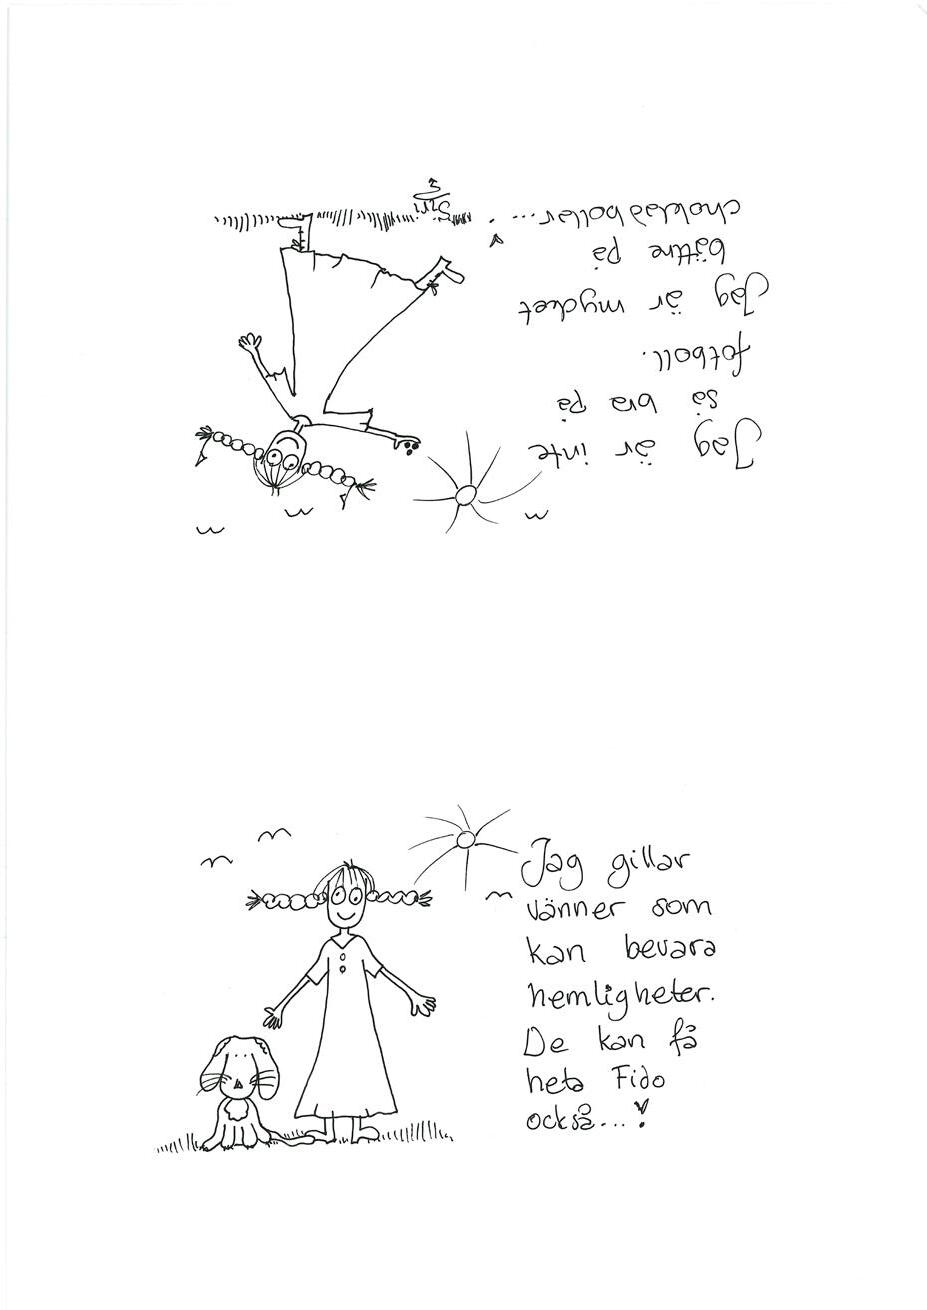 Jag är inte
så bra på
fotboll.
Jag är mycket
bättre på
chokladbollar...!
Siri
3
Jag gillar
vänner som
kan bevara
hemligheter.
De kan få
heta Fido
också...!